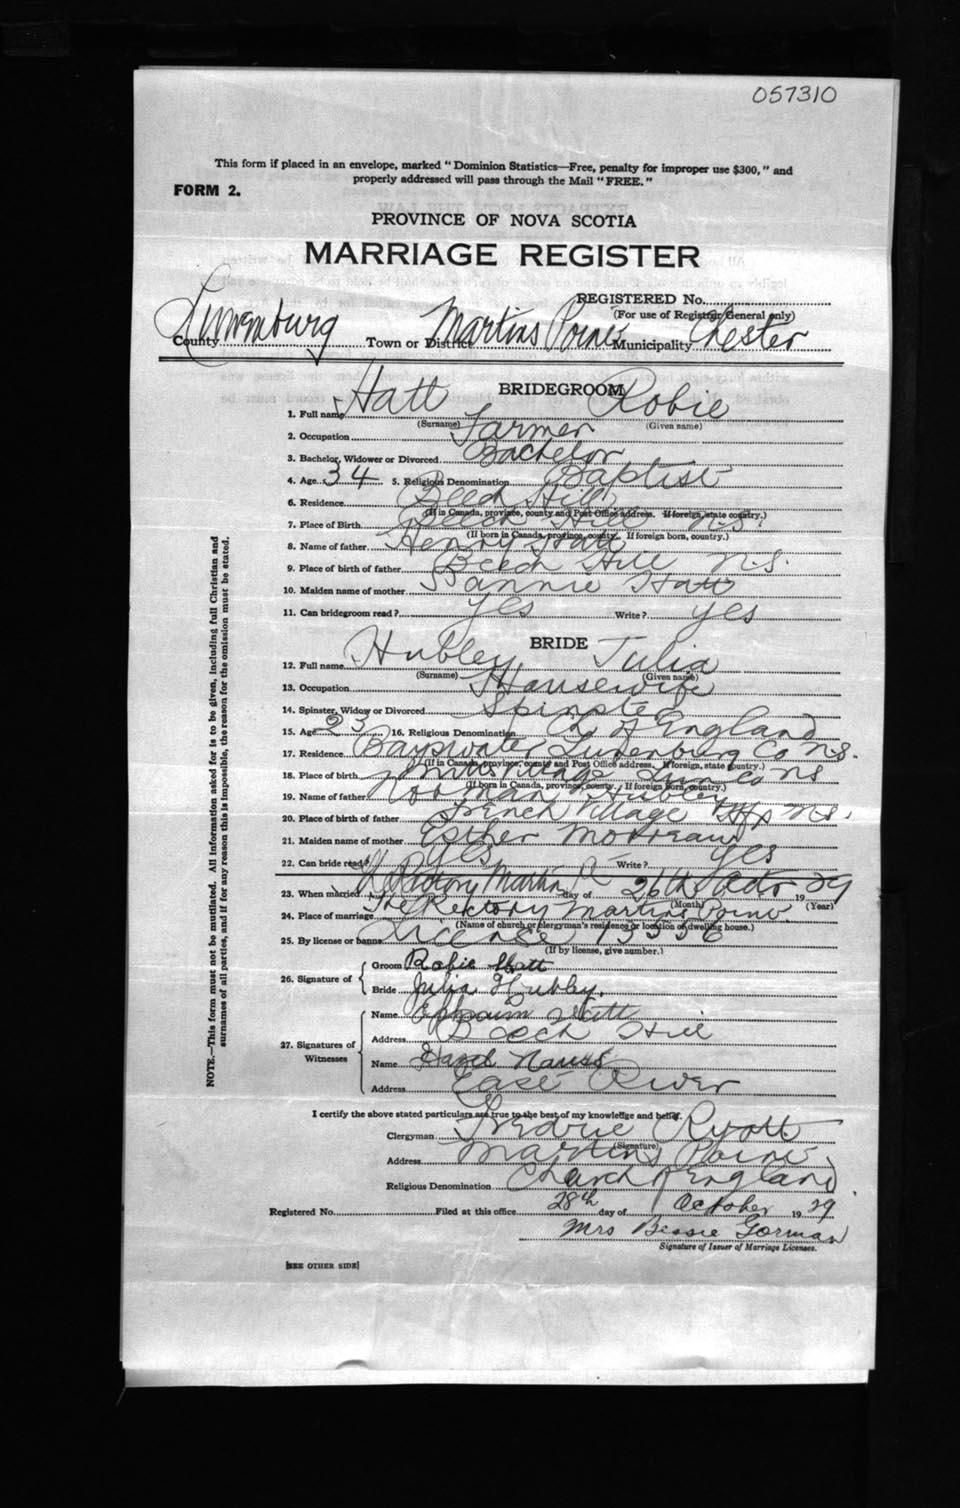 057310
This form if placed in an envelope, marked "Dominion Statistics—Free, penalty for improper use $300," and
properly addressed will pass through the Mail "FREE."
FORM 2.
PROVINCE OF NOVA SCOTIA
MARRIAGE REGISTER
REGISTERED No.
(For use of Registrar General only)
County Lunenburg Town or District Martins Point Municipality Chester
BRIDEGROOM
1. Full name Hatt Robie
(Surname) (Given name)
2. Occupation Farmer
3. Bachelor, Widower or Divorced Bachelor
4. Age 34 5. Religious Denomination Baptist
6. Residence Beech Hill
(If in Canada, province, county and Post Office address. If foreign, state country.)
7. Place of Birth Beech Hill N.S.
(If born in Canada, province, county. If foreign born, country.)
8. Name of father Henry Hatt
9. Place of birth of father Beech Hill N.S.
10. Maiden name of mother Hatt
11. Can bridegroom read? Yes Write? Yes
BRIDE
12. Full name Hubley Julia
(Surname) (Given name)
13. Occupation Housewife
14. Spinster, Widow or Divorced Spinster
15. Age 23 16. Religious Denomination Ch of England
17. Residence Bayswater Lunenburg Co N.S.
(If in Canada, province, county and Post Office address. If foreign, state country.)
18. Place of birth Village Lun Co NS
(If born in Canada, province, county. If foreign born, country.)
19. Name of father Norman Hubley
20. Place of birth of father French Village Hfx N.S.
21. Maiden name of mother Esther
22. Can bride read? Yes Write? Yes
23. When married Rectory Martin day of 26th Octo 1929
(Month) (Year)
24. Place of marriage The Rectory Martins Point
(Name of church or clergyman's residence or location of dwelling house.)
25. By license or banns License
(If by license, give number.)
26. Signature of Groom Robie Hatt
Bride Julia Hubley.
27. Signatures of Witnesses
Name Ephraim Hatt
Address Beech Hill
Name Nauss
Address East River
I certify the above stated particulars are true to the best of my knowledge and belief.
Clergyman
(Signature)
Address Martins Point
Religious Denomination Church of England
Registered No. Filed at this office 28th day of October 1929
Mrs Bessie Gorman
Signature of Issuer of Marriage Licenses.
[SEE OTHER SIDE]
NOTE.—This form must not be mutilated. All information asked for is to be given, including full Christian and
surnames of all parties, and if for any reason this is impossible, the reason for the omission must be stated.